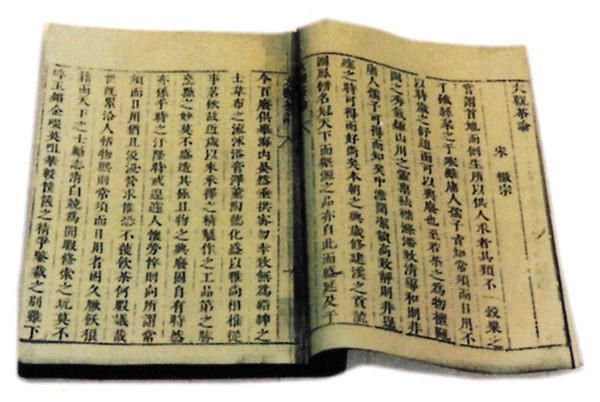 大觀茶論
宋 徽宗
嘗謂首地而倒生所以供人求者其類不一穀粟之
于饑絲枲之于寒雖庸人孺子皆知常須而日用不
以時歲之舒迫而可以興廢也至若茶之爲物擅甌
閩之秀氣鍾山川之靈稟祛襟滌滯致清導和則非
庸人孺子可得而知矣中澹閒潔韻高致靜則非遑
遽之時可得而好尚矣本朝之興歲修建溪之貢龍
團鳳餅名冠天下而壑源之品亦自此而盛延及于
今百廢俱舉海內晏然垂拱密勿幸致無爲縉紳之
士韋布之流沐浴膏澤薰陶德化盛以雅尚相推從
事茗飲故近歲以來采擇之精製作之工品第之勝
烹點之妙莫不盛造其極且物之興廢固自有時然
亦係乎時之汙隆時或遑遽人懷勞悴則向所謂常
須而日用猶且汲汲營求惟恐不獲飲茶何暇議哉
世既累洽人恬物熙則常須而日用者因久厭飫狼
籍而天下之士勵志清白競爲閒暇修索之玩莫不
碎玉鏘金啜英咀華較筐篋之精爭鑒裁之別雖下